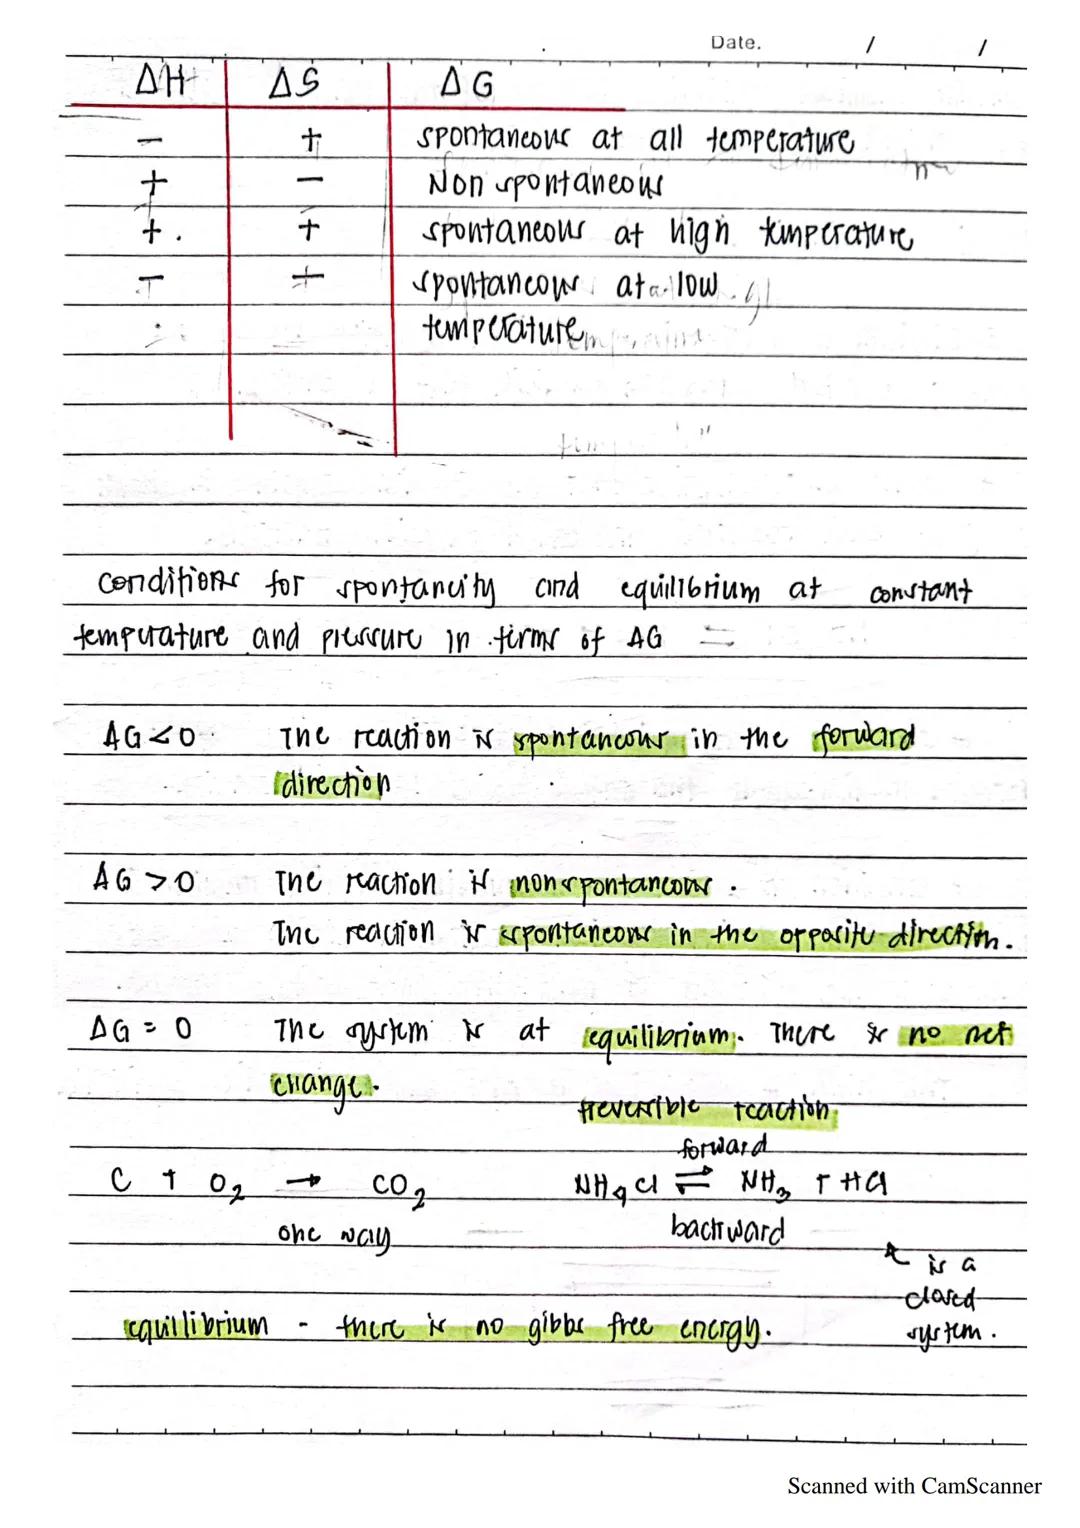 Date. / /
ΔH ΔS ΔG
− + spontaneous at all temperature
+ − Non spontaneous
+. + spontaneous at high temperature
− ∓ spontaneous at low
temperature
conditions for spontaneity and equilibrium at constant
temperature and pressure in terms of ΔG =
ΔG < 0 The reaction is spontaneous in the forward
direction
ΔG > 0 The reaction is nonspontaneous.
The reaction is spontaneous in the opposite direction.
ΔG = 0 The system is at equilibrium. There is no net
change.
reversible reaction
forward
C + O2 → CO2 NH4Cl ⇌ NH3 + HCl
one way backward
is a
closed
equilibrium - there is no gibbs free energy. system.
Scanned with CamScanner